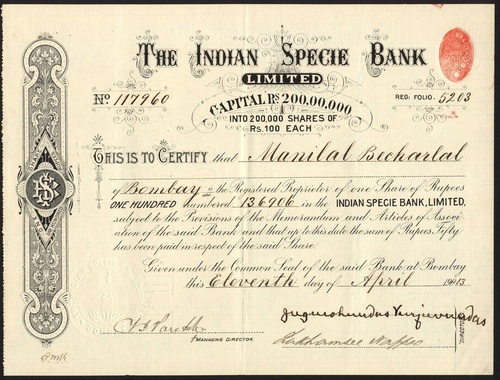 THE INDIAN SPECIE BANK
LIMITED
CAPITAL RS 200,00,000
INTO 200,000 SHARES OF
RS. 100 EACH
No 117960
REG: FOLIO. 5203
THIS IS TO CERTIFY that Manilal Becharlal
of Bombay is the Registered Proprietor of one Share of Rupees
ONE HUNDRED numbered 136906 in the INDIAN SPECIE BANK, LIMITED.
subject to the Provisions of the Memorandum and Articles of Associ
ation of the said Bank and that up to this date the sum of Rupees Fifty
has been paid in respect of the said Share.
Given under the Common Seal of the said Bank at Bombay
this Eleventh day of April 1913
MANAGING DIRECTOR.
DIRECTORS